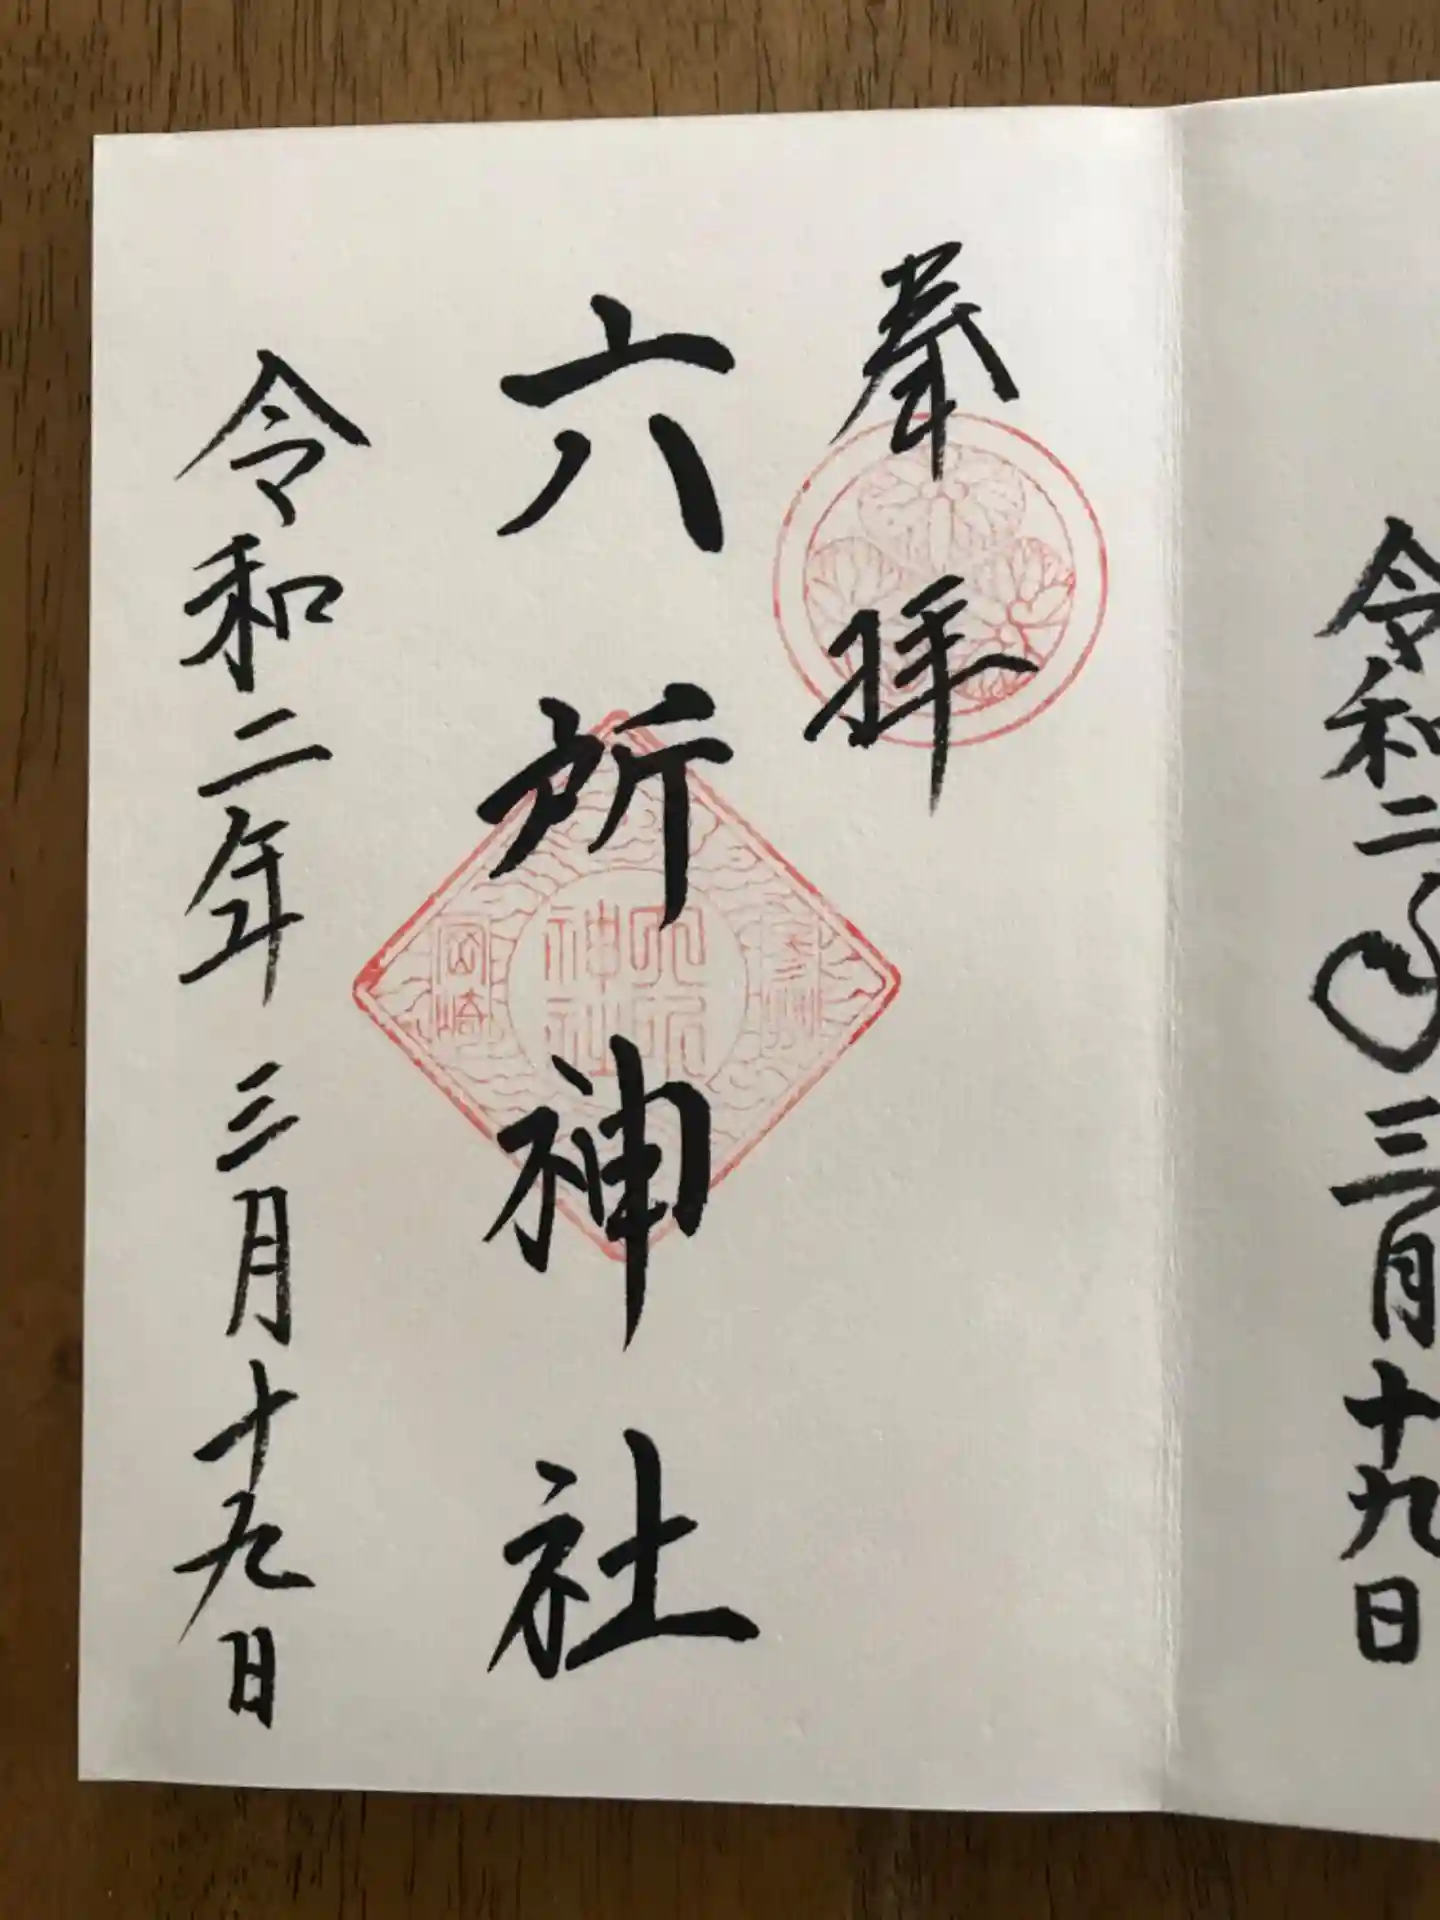 令和二年三月十九日
奉拝
六所神社
令和二年三月十九日
参州
六所神社
岡崎